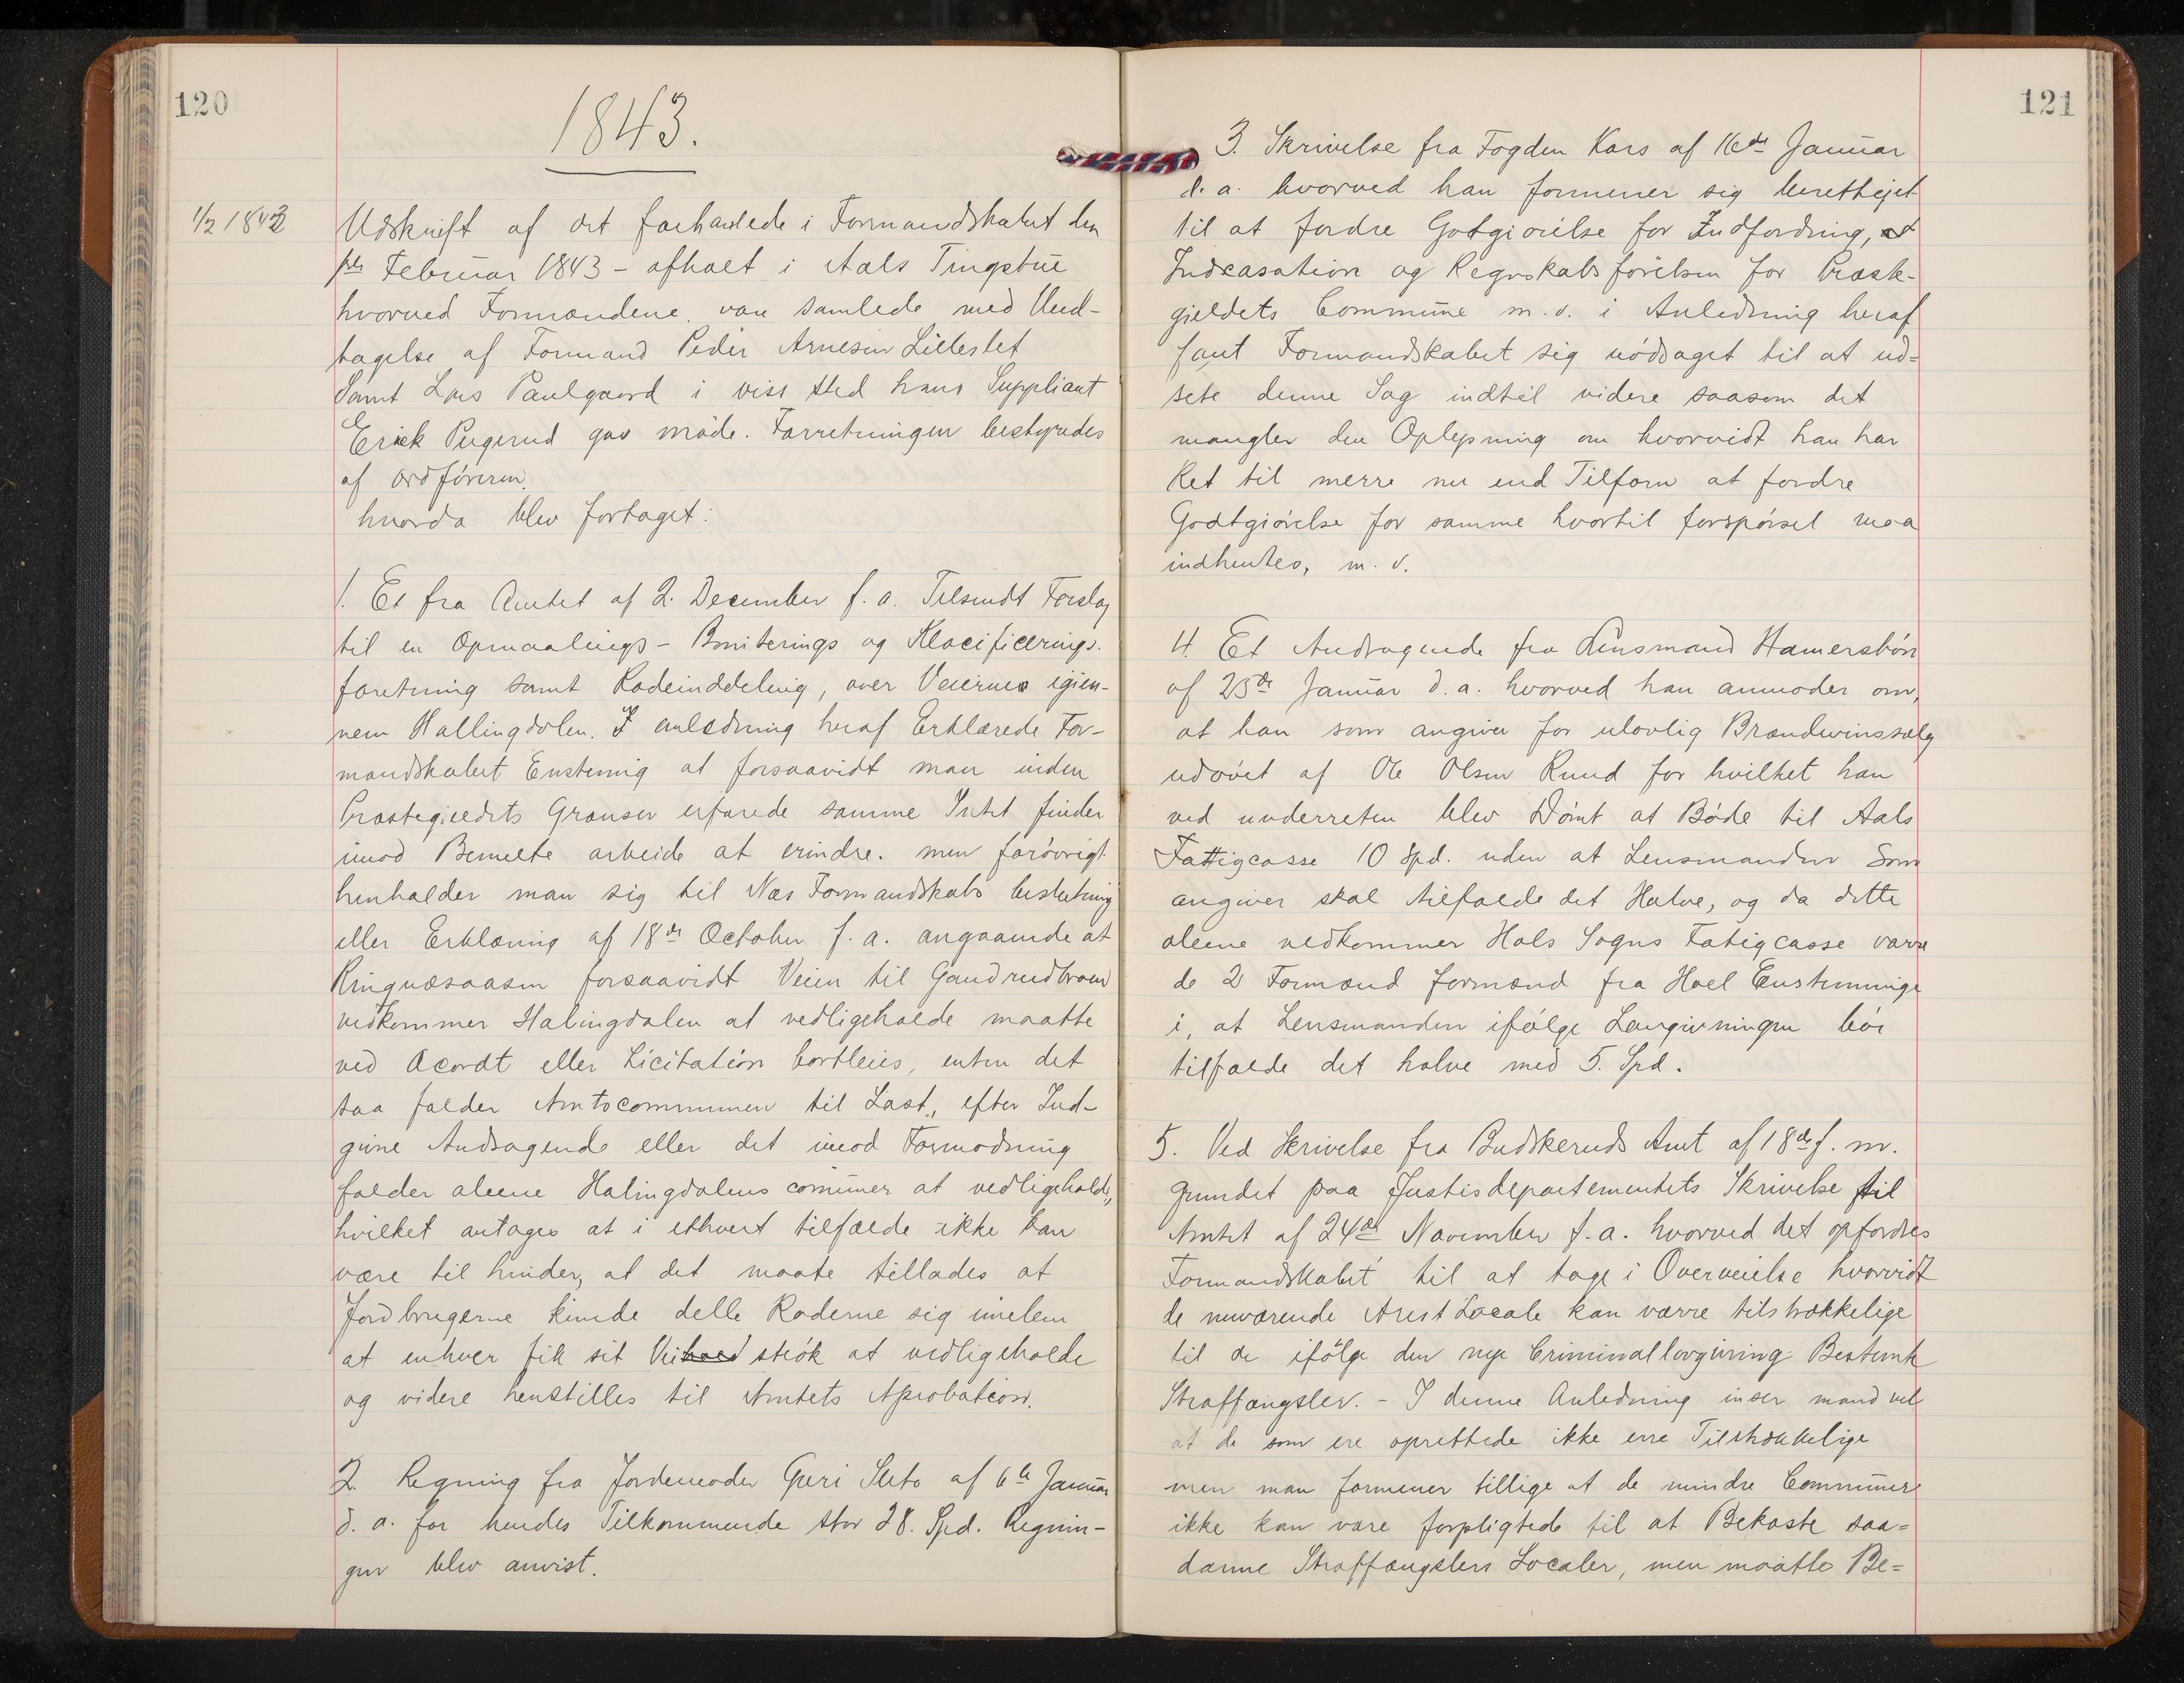 120
1843.
1/2 1843
Udskrift af det forhandlede i Formandskabet den
1ste Februar 1843 - afholt i Aals Tingstue
hvorved Formændene vare samlede med Und-
tagelse af Formand Peder Arnesen Lilleslet
Samt Lars Paulgaard i viss sted hans Suppliant
Erick Pugerud gav møde. Forretningen bestyredes
af ordføreren.
hvorda blev fortaget:
1. Et fra Amtet af 2. December f. a. Tilsendt Forslag
til en Opmaalings - Boniterings og Klacificerings-
foretning samt Rodeinddeling, over Veiernes igien-
nem Hallingdolen. I anledning heraf Erklærede For-
mandskabet Enstemig at forsaavidt man inden
Præstegieldets Grænser erfarede samme Intet finder
imod Bemelte arbeide at erindre. men forøvrigt
henholder man sig til Nes Formandskabs beslutning
eller Erklæring af 18de October f. a. angaaende at
Ringnesaasen forsaavidt Veien til Gandrudbroen
vedkommer Halingdalen at vedligeholde maatte
ved Acordt eller Licitation bortleies, enten det
saa falder Amtscommunen til Last, efter Ind-
givne Andragende eller det imod Formodning
falder aleene Halingdalens comuner at vedligeholde,
hvilket antages at i ethvert tilfælde ikke kan
være til hinder, at det maate tillades at
Jordbrugerne kunde delle Roderne sig imelem
at enhver fik sit Vei strök at vedligeholde
og videre henstilles til Amtets Aprobation.
2. Regning fra Jordemoder Guri Sleto af 6te Januar
d. a. for hendes Tilkommende stor 28. Spd. Regnin-
gen blev anvist.
121
3. Skrivelse fra Fogden Kars af 16de Januar
d. a. hvorved han formener sig berettiget
til at fordre Gotgiørelse for Indfordring,
Indcasation og Regnskabsførelsen for Præste-
gieldets Commune m. v. i Anledning heraf
fant Formandskabet sig nødsaget til at ud=
sete denne Sag indtil videre saasom det
mangler den Oplysning om hvorvidt han har
Ret til merre nu end Tilforn at fordre
Godtgiørelse for samme hvortil forspørsel maa
indhentes, m. v.
4. Et Andragende fra Lensmand Hamersbøn
af 25de Januar d. a. hvorved han anmoder om,
at han som angiver for ulovlig Brændevinssalg
udøvet af Ole Olsen Ruud for hvilket han
ved underretten blev Dømt at Bøde til Aals
Fattigcasse 10 Spd. uden at Lensmanden Som
angiver skal tilfalde det Halve, og da dette
aleene vedkommer Hols Sogns Fatigcasse varre
de 2 Formænd formænd fra Hoel Eenstemmige
i, at Lensmanden ifølge Lovgivningen bør
tilfalde det halve med 5. Spd.
5. Ved Skrivelse fra Budskeruds Amt af 18de f. m.
grundet paa Justisdepartementets Skrivelse til
Amtet af 24de November f. a. hvorved det opfordres
Formandskabet til at tage i Overveielse hvorvidt
de nuværende Arest Locale kan værre tilstrækkelige
til de ifølge den nye Criminallovgivning Bestemte
Straffængsler. - I denne Anledning inser mand vel
at de som ere oprettede ikke erre Tilstrækkelige
men man formener tillige at de mindre Communer
ikke kan være forpligtede til at Bekoste saa=
danne Straffængslers Localer, men maatte Be=